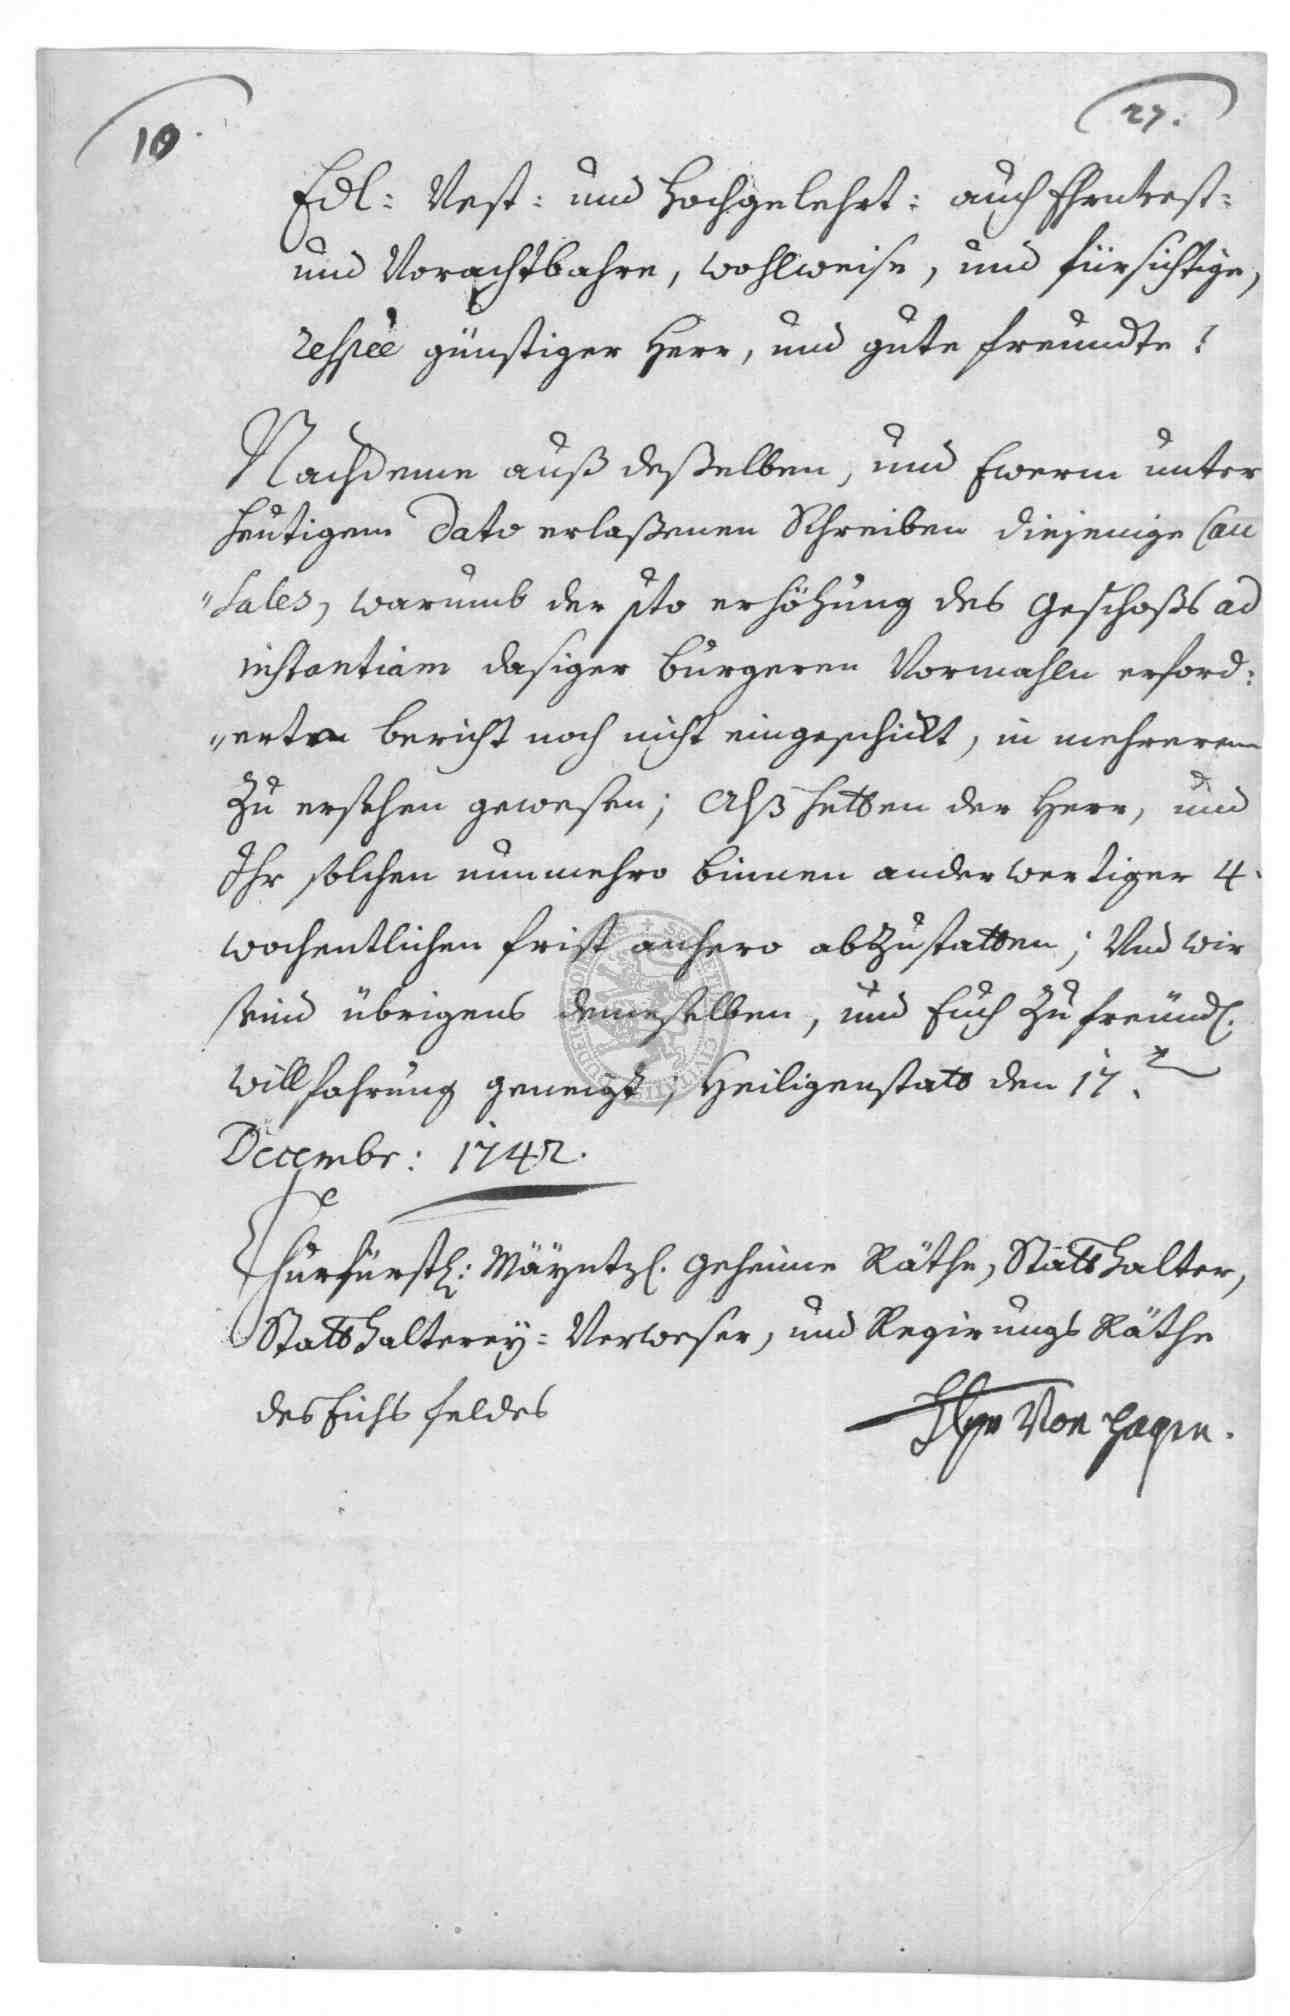 10.
27.
Edl: Vest: und Hochgelehrt: auch Ehrnvest:
und Vorachtbahre, wohlweise, und fürsichtige,
respèe günstiger Herr, und gute freundte!
Nachdeme auß deßelben, und Ewerm unter
heutigem Dato erlaßenen Schreiben diejenige Cau
"sales, warumb der pto erhöhung des Geschoßs ad
instantiam dasiger burgeren Vormahln erford:
"erte bericht noch nicht eingeschickt, in mehrerem
zu ersehen gewesen; Alß hetten der Herr, und
Ihr solchen nunmehro binnen anderwertiger 4.
wochentlichen frist anhero abzustatten; Und wir
seind übrigens demeselben, und Euch zu freündl.
willfahrung geneigt; Heiligenstatt den 17.
Decembr: 1742.
Churfürstl: Mäyntzl. geheime Räthe, Statthalter,
Statthalterey-Verweser, und Regirungs Räthe
des Eichsfeldes
Von Hagen.